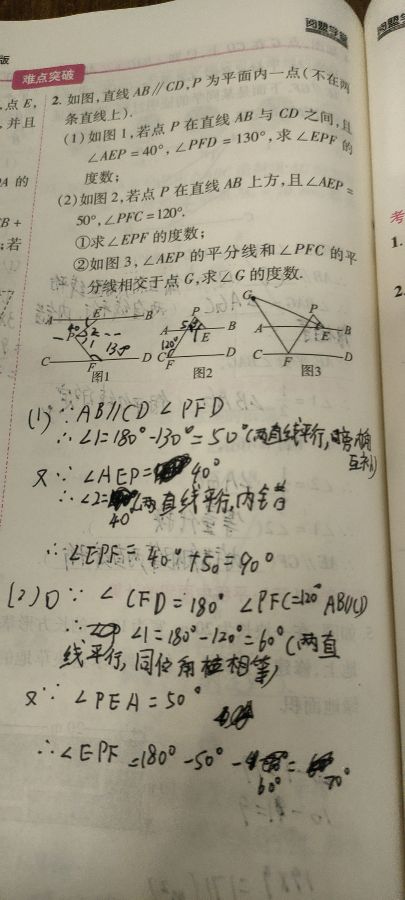 版
阅塾学堂
难点突破
,点 E,
,并且
2. 如图,直线 AB∥CD,P 为平面内一点(不在两
条直线上).
(1)如图 1,若点 P 在直线 AB 与 CD 之间,且
∠AEP=40°,∠PFD=130°,求∠EPF 的
度数;
DA 的
(2)如图 2,若点 P 在直线 AB 上方,且∠AEP=
50°,∠PFC=120°.
CB+
①求∠EPF 的度数;
;若
②如图 3,∠AEP 的平分线和∠PFC 的平
分线相交于点 G,求∠G 的度数.
考
1.
2.
A E B
40°
P 2
1 130
C F D
图1
P
A 50 E B
120°
C F D
图2
G
P
A E B
C F D
图3
(1)∵AB∥CD ∠PFD
∴∠1=180°-130°=50°(两直线平行,同旁内角
互补)
又∵∠AEP=40°
∴∠2=40(两直线平行,内错
∴∠EPF=40°+50=90°
(2)①∵∠CFD=180° ∠PFC=120° AB∥CD
∴∠1=180°-120°=60°(两直
线平行,同位角相等)
又∵∠PEA=50°
∴∠EPF=180°-50°-60°=70°